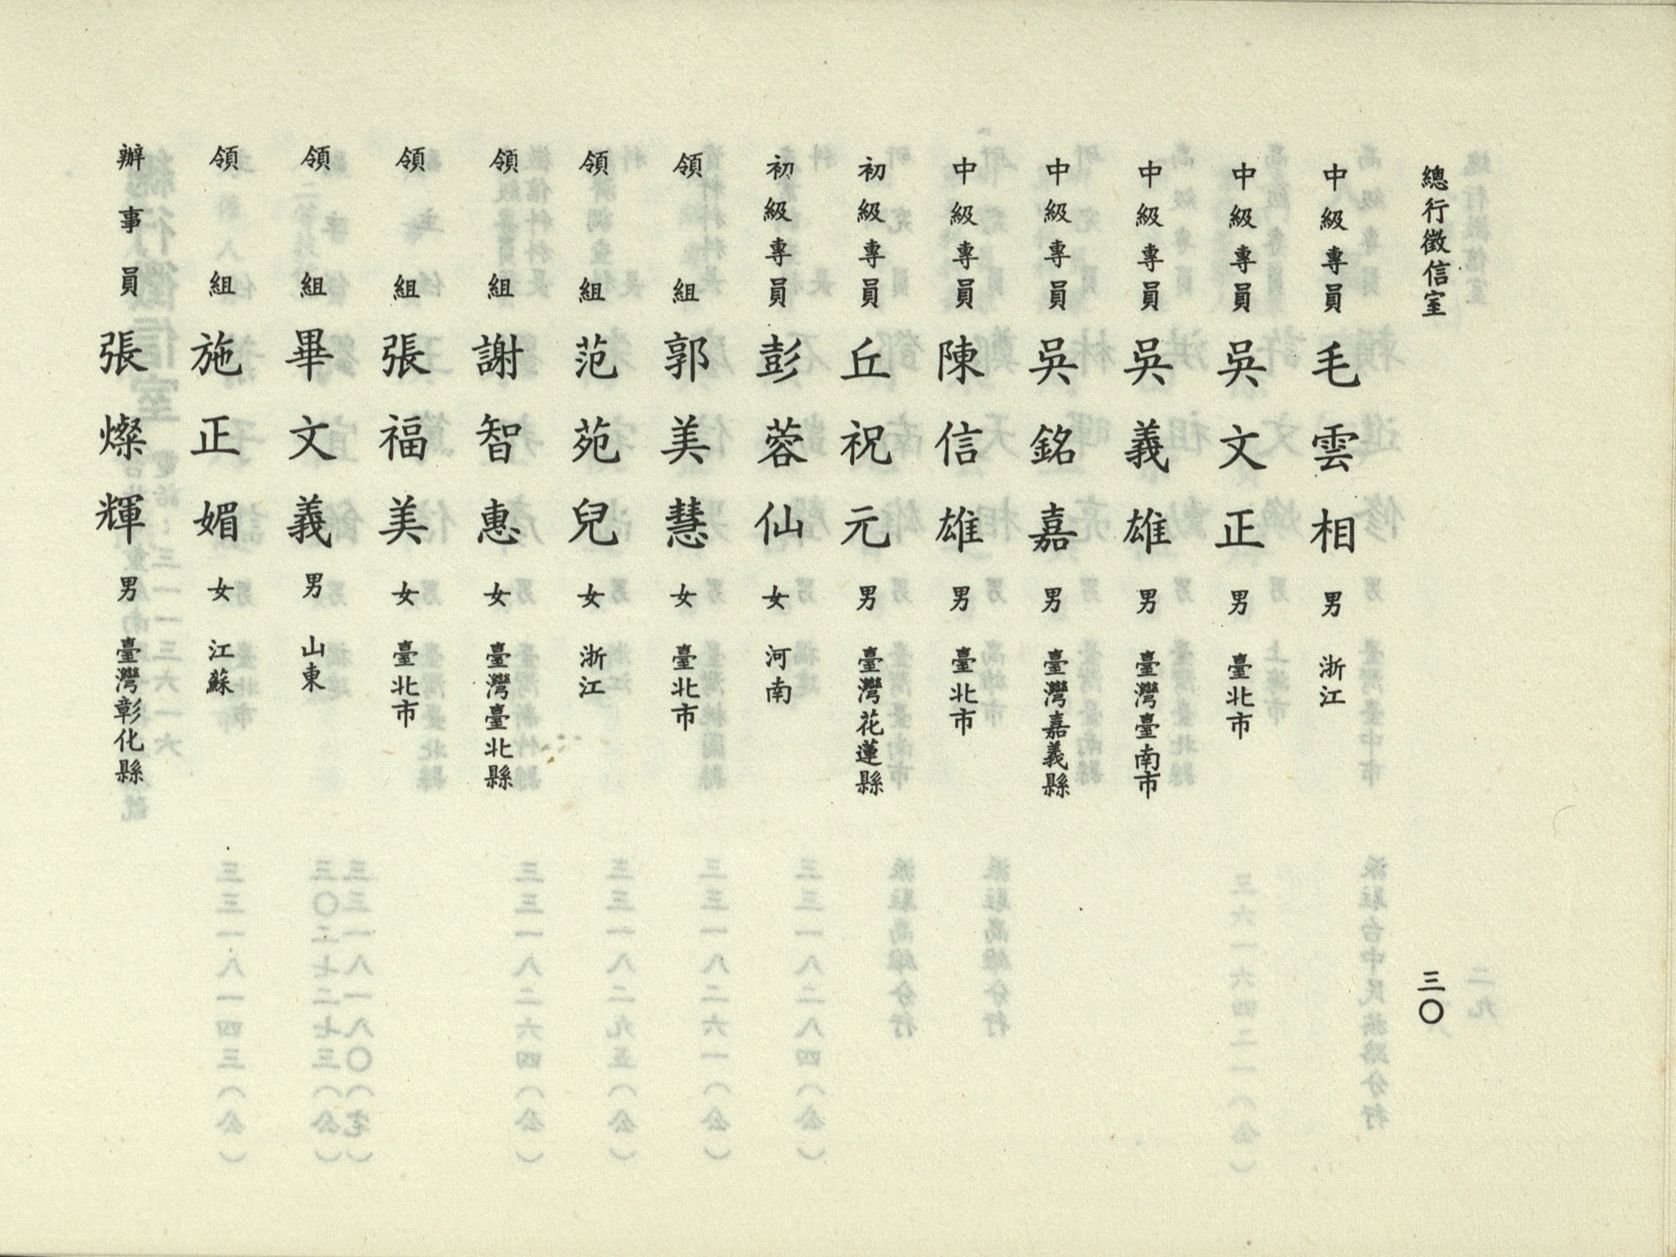 總行徵信室
三〇
中級專員 毛雲相 男 浙江
中級專員 吳文正 男 臺北市
中級專員 吳義雄 男 臺灣臺南市
中級專員 吳銘嘉 男 臺灣嘉義縣
中級專員 陳信雄 男 臺北市
初級專員 丘祝元 男 臺灣花蓮縣
初級專員 彭蓉仙 女 河南
領組 郭美慧 女 臺北市
領組 范苑兒 女 浙江
領組 謝智惠 女 臺灣臺北縣
領組 張福美 女 臺北市
領組 畢文義 男 山東
領組 施正媚 女 江蘇
辦事員 張燦輝 男 臺灣彰化縣